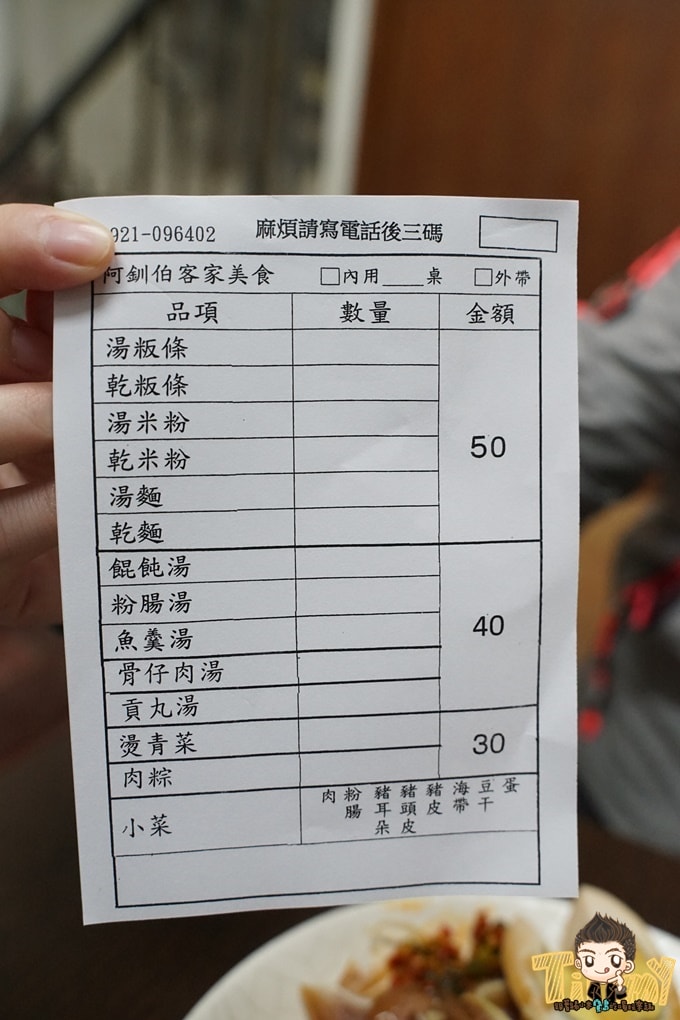 921-096402 麻煩請寫電話後三碼
阿釧伯客家美食 □內用____桌 □外帶
品項 數量 金額
湯粄條
乾粄條
湯米粉
乾米粉
湯麵
乾麵
50
餛飩湯
粉腸湯
魚羹湯
骨仔肉湯
貢丸湯
40
燙青菜
肉粽
30
小菜
肉 粉腸 豬耳朵 豬頭皮 豬皮 海帶 豆干 蛋